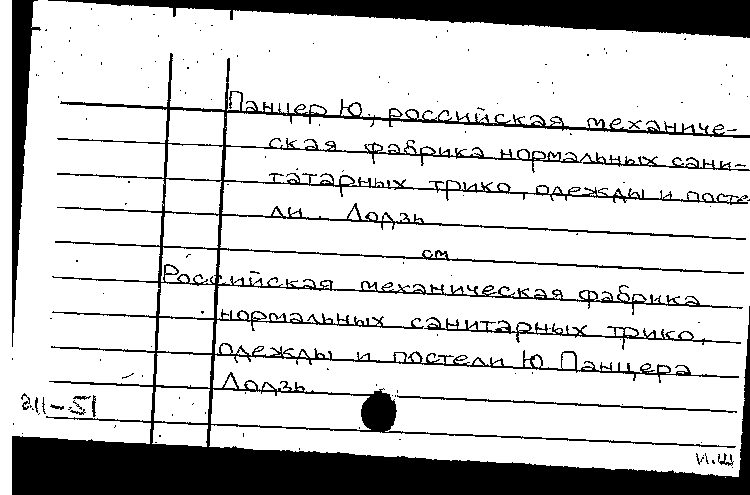 Панцер Ю, российская механиче-
ская фабрика нормальных сани-
татарных трико, одежды и посте
ли. Лодзь
см
Российская механическая фабрика
нормальных санитарных трико,
одежды и постели Ю Панцера
Лодзь.
211-51
И.Ш